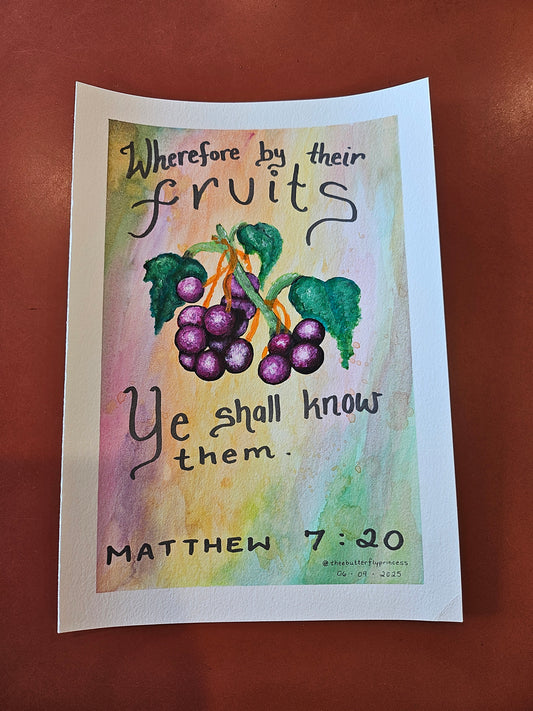 Wherefore by their
fruits
Ye shall know
them.
MATTHEW 7:20
@theebutterflyprincess
06.09.2025